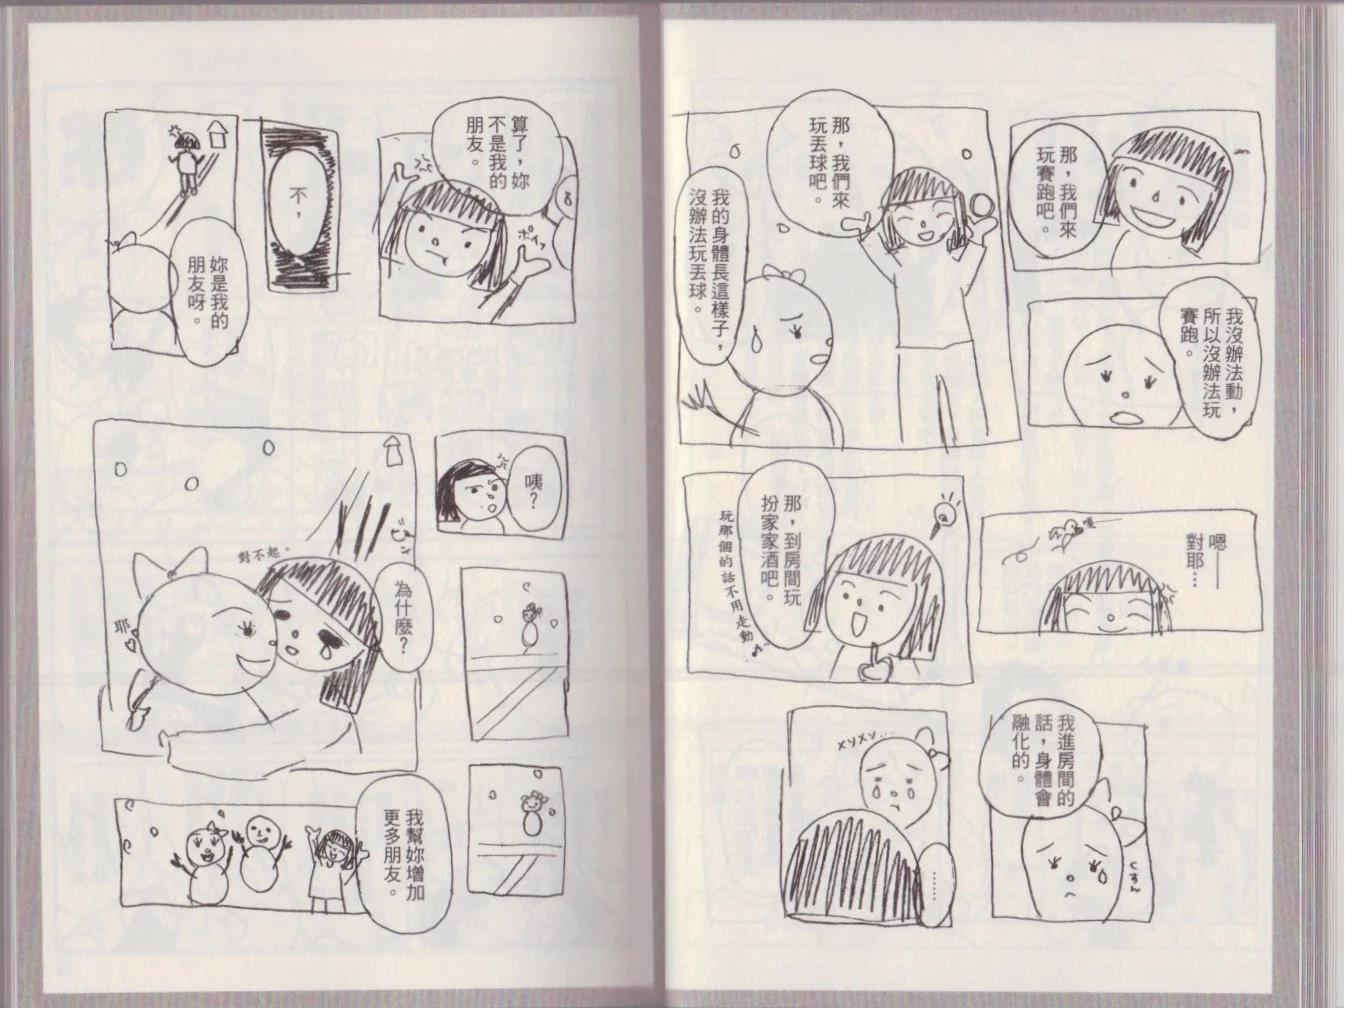 那,我們來
玩賽跑吧。
我沒辦法動,
所以沒辦法玩
賽跑。
那,我們來
玩丟球吧。
我的身體長這樣子,
沒辦法玩丟球。
嗯——
對耶…
嘎
那,到房間玩
扮家家酒吧。
玩那個的話不用走動♪
我進房間的
話,身體會
融化的。
くすん
メソメソ…
………
算了,妳
不是我的
朋友。
ポイッ
不,
妳是我的
朋友呀。
咦?
為什麼?
對不起。
耶
我幫妳增加
更多朋友。